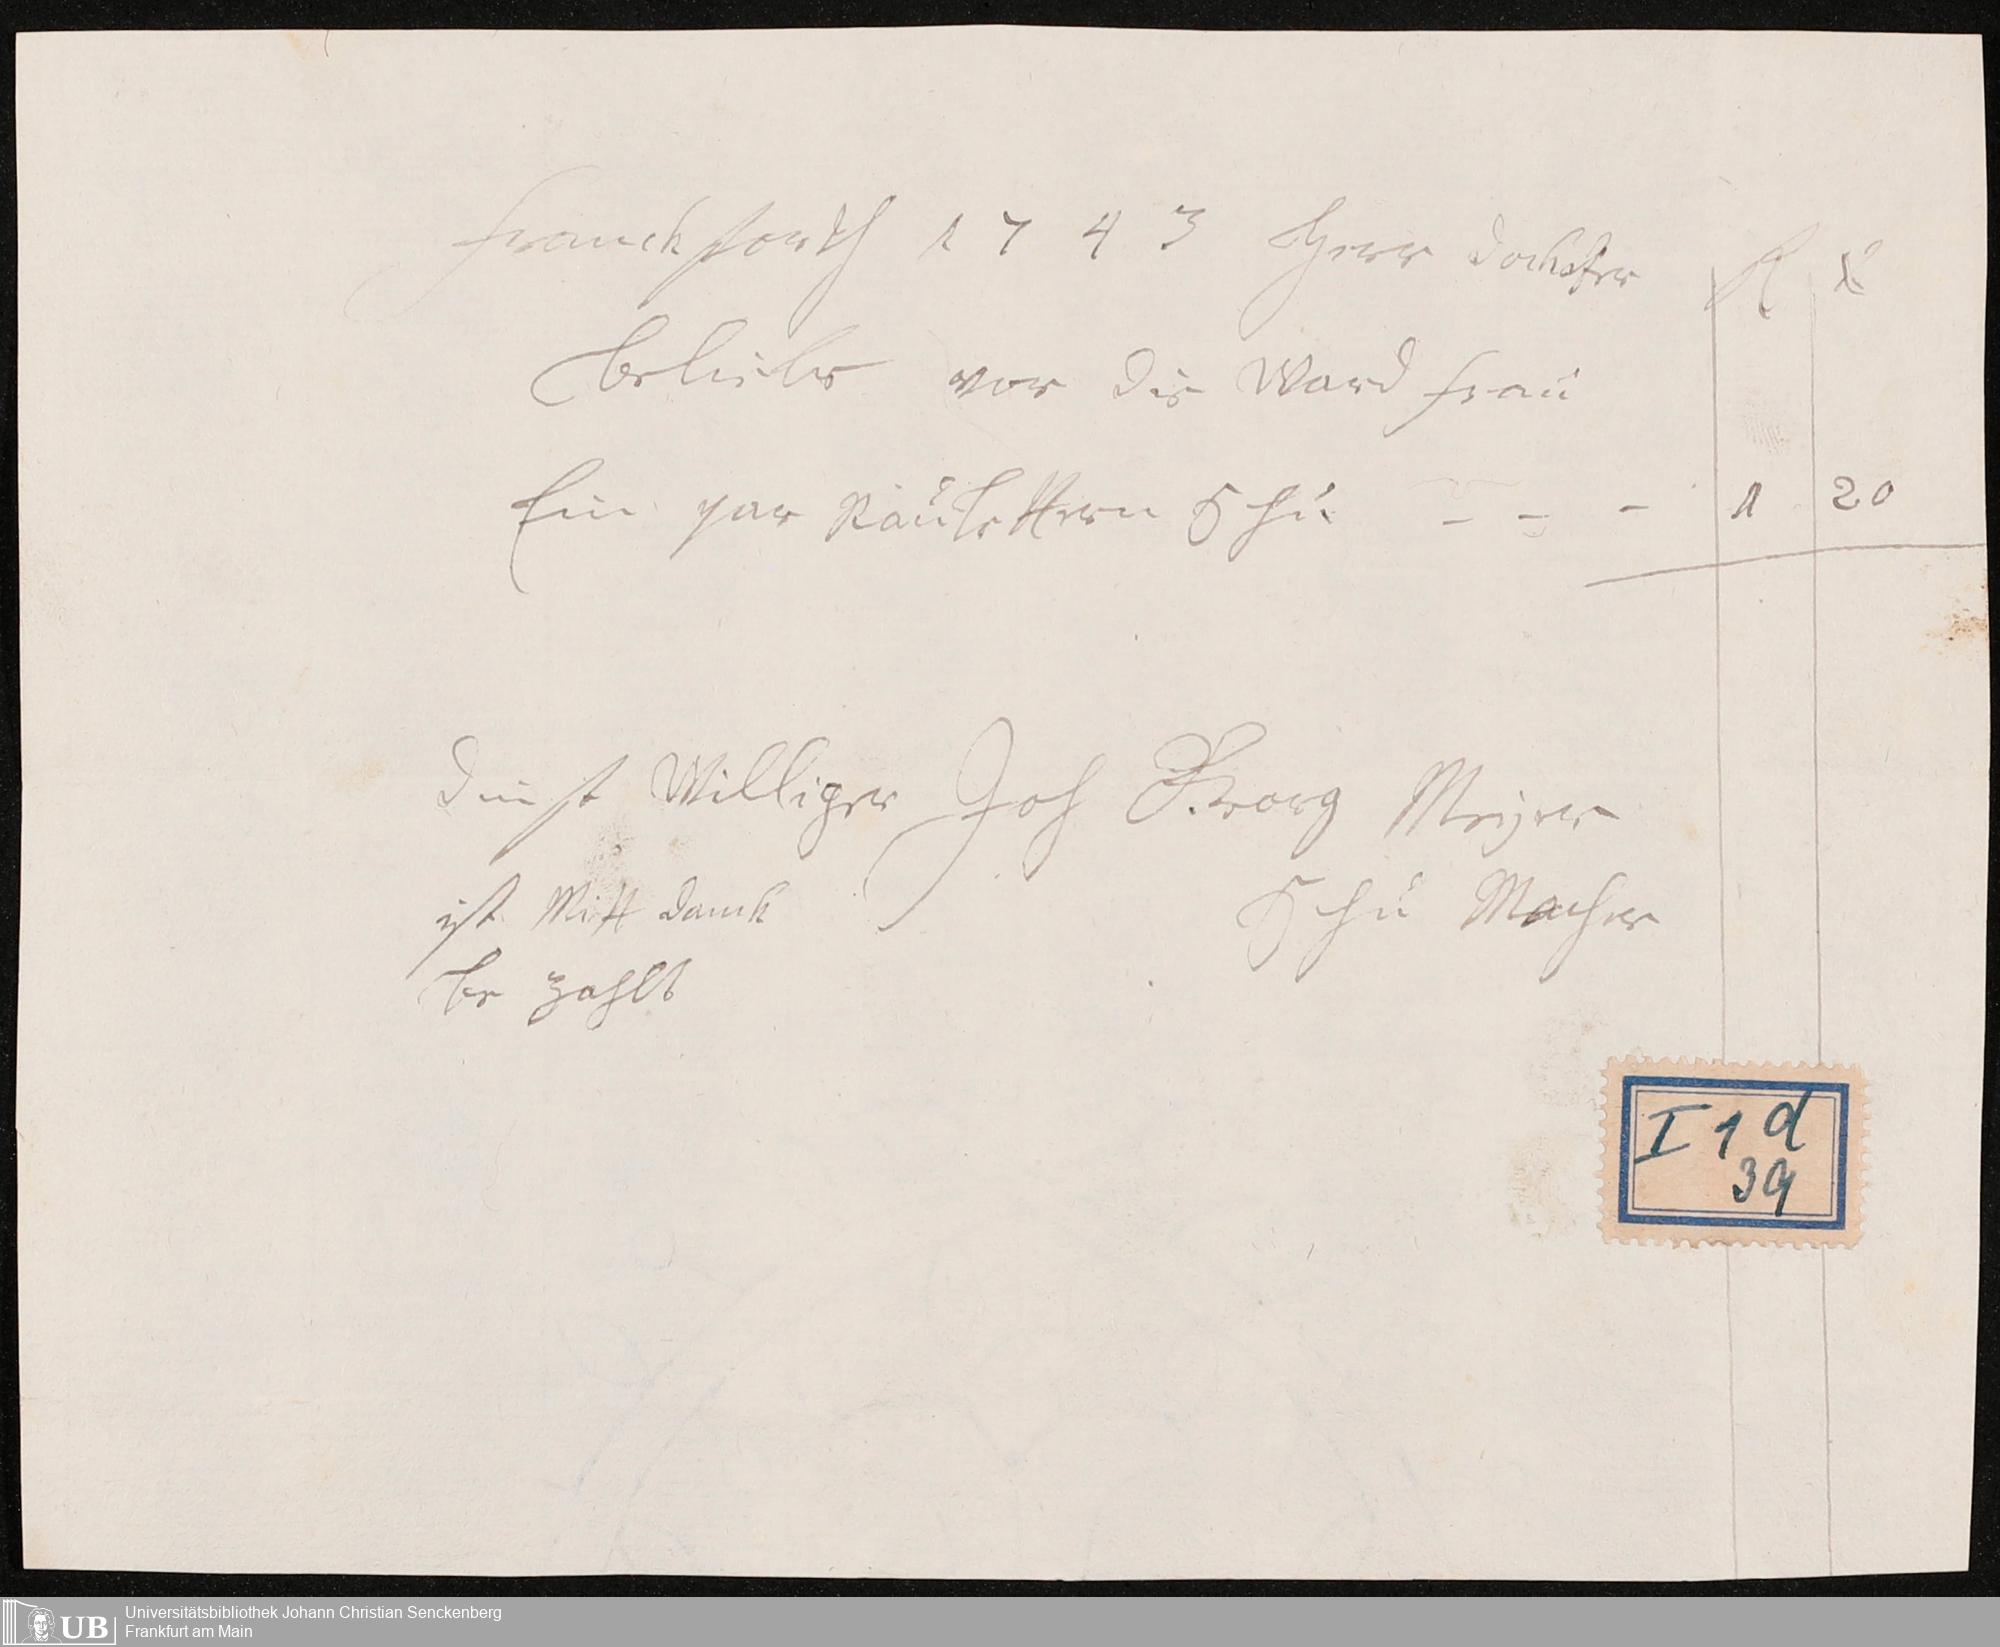 franckforth 1743 Herr dochter fl x
beliebe vor die Ward frau
Ein par Rauledtern Schu - - - 1 20
dinst Williger Joh Georg Meyer
ist Mitt danck Schu Macher
be zahlt
I 1 d
39
UB Universitätsbibliothek Johann Christian Senckenberg
Frankfurt am Main